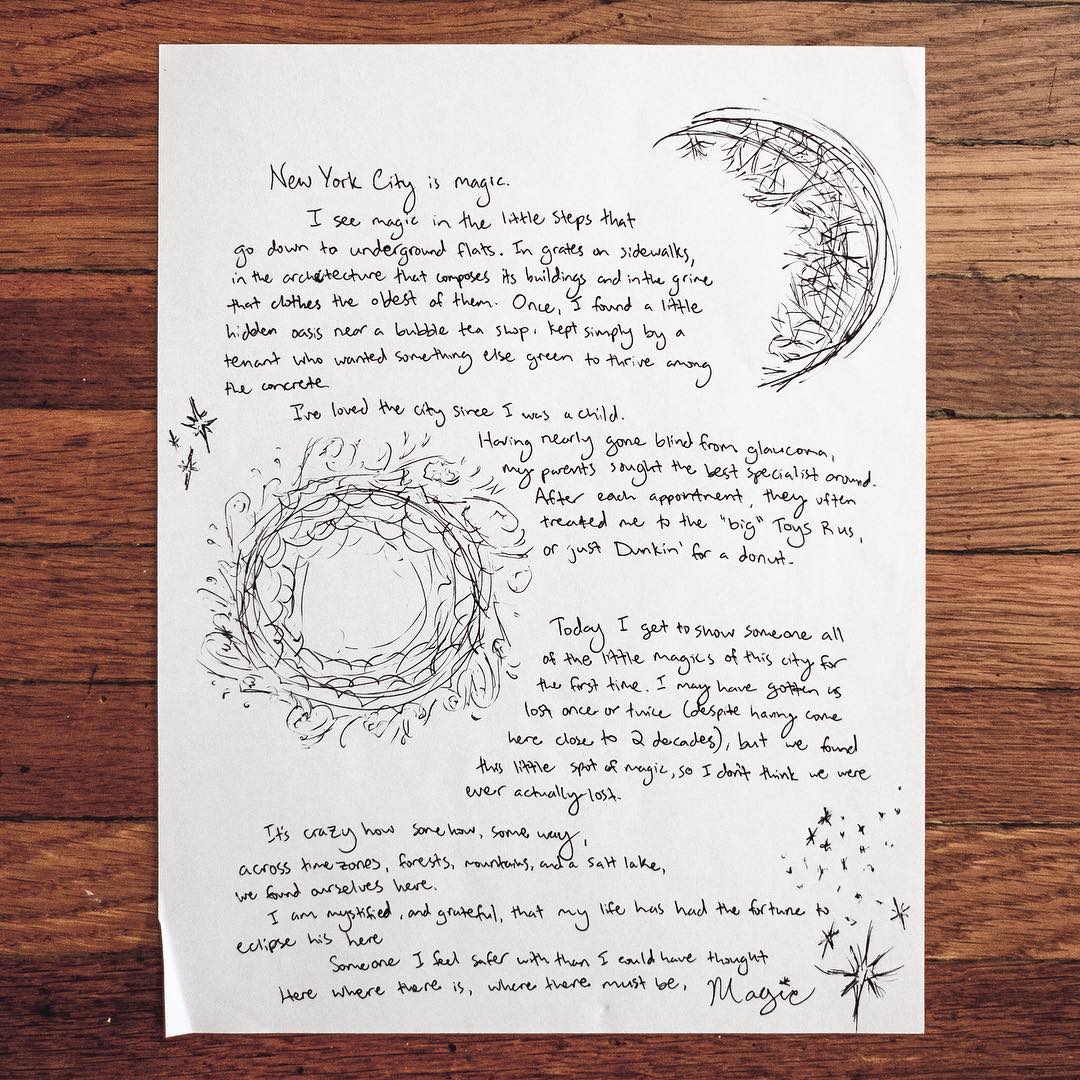 New York City is magic.
I see magic in the little steps that
go down to underground flats. In grates on sidewalks,
in the architecture that composes its buildings and in the grime
that clothes the oldest of them. Once, I found a little
hidden oasis near a bubble tea shop, kept simply by a
tenant who wanted something else green to thrive among
the concrete
I've loved the city since I was a child.
Having nearly gone blind from glaucoma,
my parents sought the best specialist around.
After each appointment, they often
treated me to the "big" Toys R us,
or just Dunkin' for a donut.
Today I get to show someone all
of the little magics of this city for
the first time. I may have gotten us
lost once or twice (despite having come
here close to 2 decades), but we found
this little spot of magic, so I don't think we were
ever actually lost.
It's crazy how somehow, some way,
across time zones, forests, mountains, and a salt lake,
we found ourselves here.
I am mystified, and grateful, that my life has had the fortune to
eclipse his here
Someone I feel safer with than I could have thought
Here where there is, where there must be, Magic